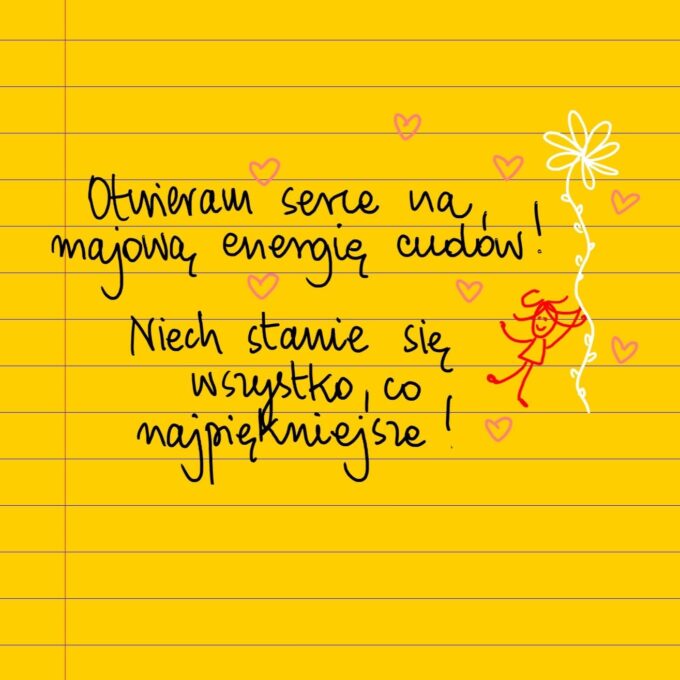 Otwieram serce na
majową energię cudów!
Niech stanie się
wszystko, co
najpiękniejsze!